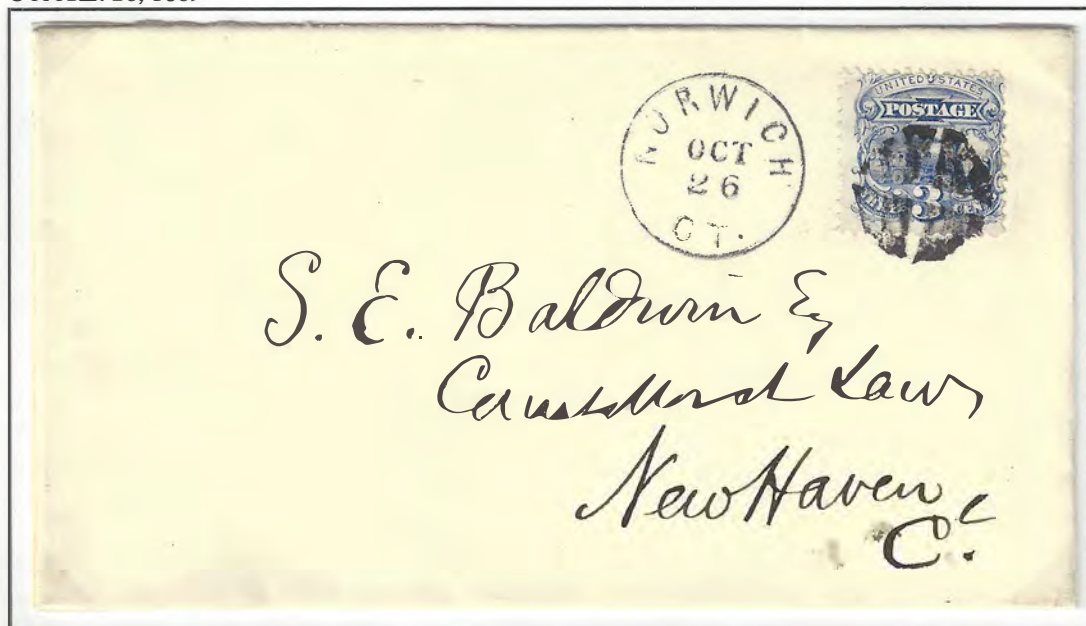 NORWICH
OCT
26
CT.
UNITED STATES
POSTAGE
3
S. E. Baldwin Esq
Counsellor at Law
New Haven
Ct.